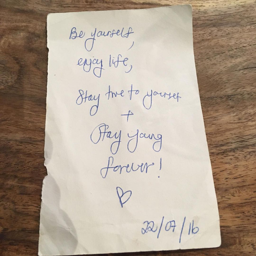 Be yourself,
enjoy life,
Stay true to yourself
+
Stay young
forever!
22/07/16